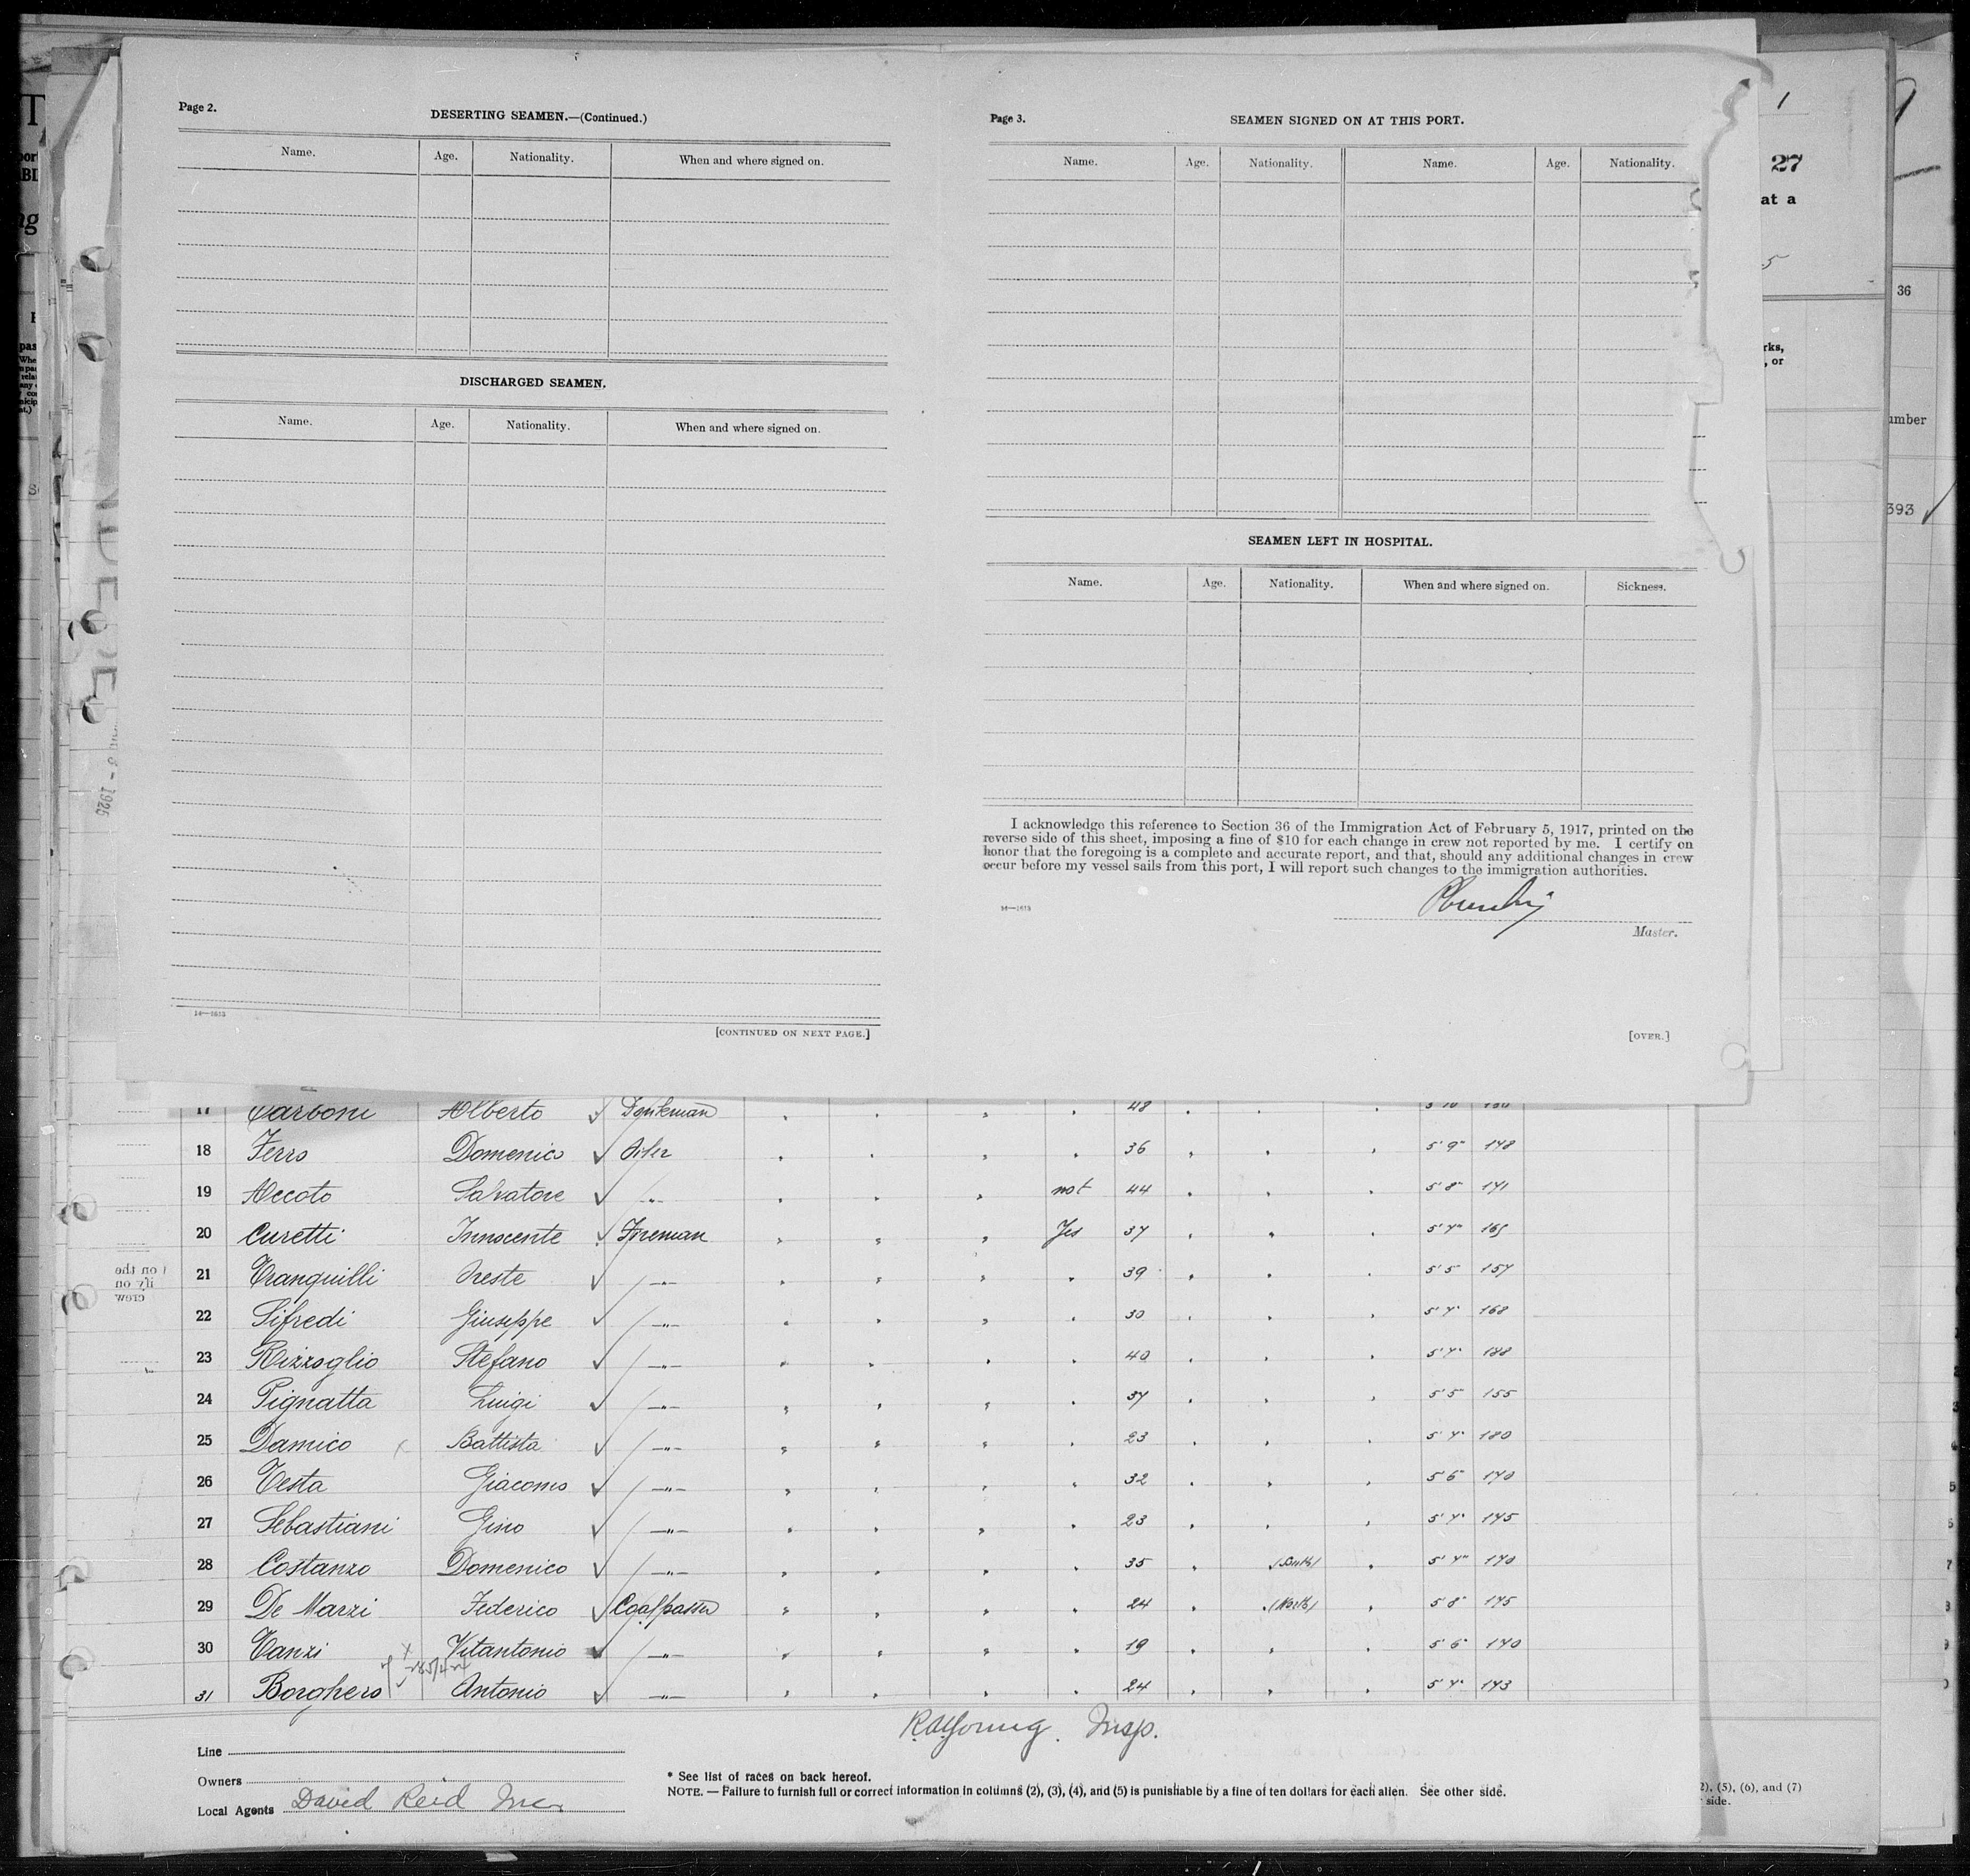 Page 2.
DESERTING SEAMEN.—(Continued.)
Name. Age. Nationality. When and where signed on.
DISCHARGED SEAMEN.
Name. Age. Nationality. When and where signed on.
14—1613
[CONTINUED ON NEXT PAGE.]
Page 3.
SEAMEN SIGNED ON AT THIS PORT.
Name. Age. Nationality. Name. Age. Nationality.
SEAMEN LEFT IN HOSPITAL.
Name. Age. Nationality. When and where signed on. Sickness.
I acknowledge this reference to Section 36 of the Immigration Act of February 5, 1917, printed on the
reverse side of this sheet, imposing a fine of $10 for each change in crew not reported by me. I certify on
honor that the foregoing is a complete and accurate report, and that, should any additional changes in crew
occur before my vessel sails from this port, I will report such changes to the immigration authorities.
14—1613
Master.
[OVER.]
27
at a
36
rks,
, or
umber
393
1925
17 Carboni Alberto Donkman 48
18 Ferro Domenico Oiler 36 5' 9" 148
19 Accoto Salvatore " not 44 5' 8" 141
20 Curetti Innocente Fireman Yes 37 5' 4" 165
21 Tranquilli Oreste —"— 39 5' 5" 157
22 Sifredi Giuseppe —"— 30 5' 4" 168
23 Rizzoglio Stefano —"— 40 5' 4" 188
24 Pignatta Luigi —"— 37 5' 5" 155
25 Damico Battista —"— 23 5' 4" 180
26 Testa Giacomo —"— 32 5' 6" 140
27 Sebastiani Gino —"— 23 5' 4" 145
28 Costanzo Domenico —"— 35 (South) 5' 4" 140
29 De Marzi Federico Coalpasser 24 (North) 5' 8" 145
30 Tanzi Vitantonio —"— 19 5' 6" 140
31 Borghero Antonio —"— 24 5' 4" 143
Insp.
Line
Owners
Local Agents David Reid Inc.
* See list of races on back hereof.
NOTE. — Failure to furnish full or correct information in columns (2), (3), (4), and (5) is punishable by a fine of ten dollars for each alien. See other side.
2), (5), (6), and (7)
side.